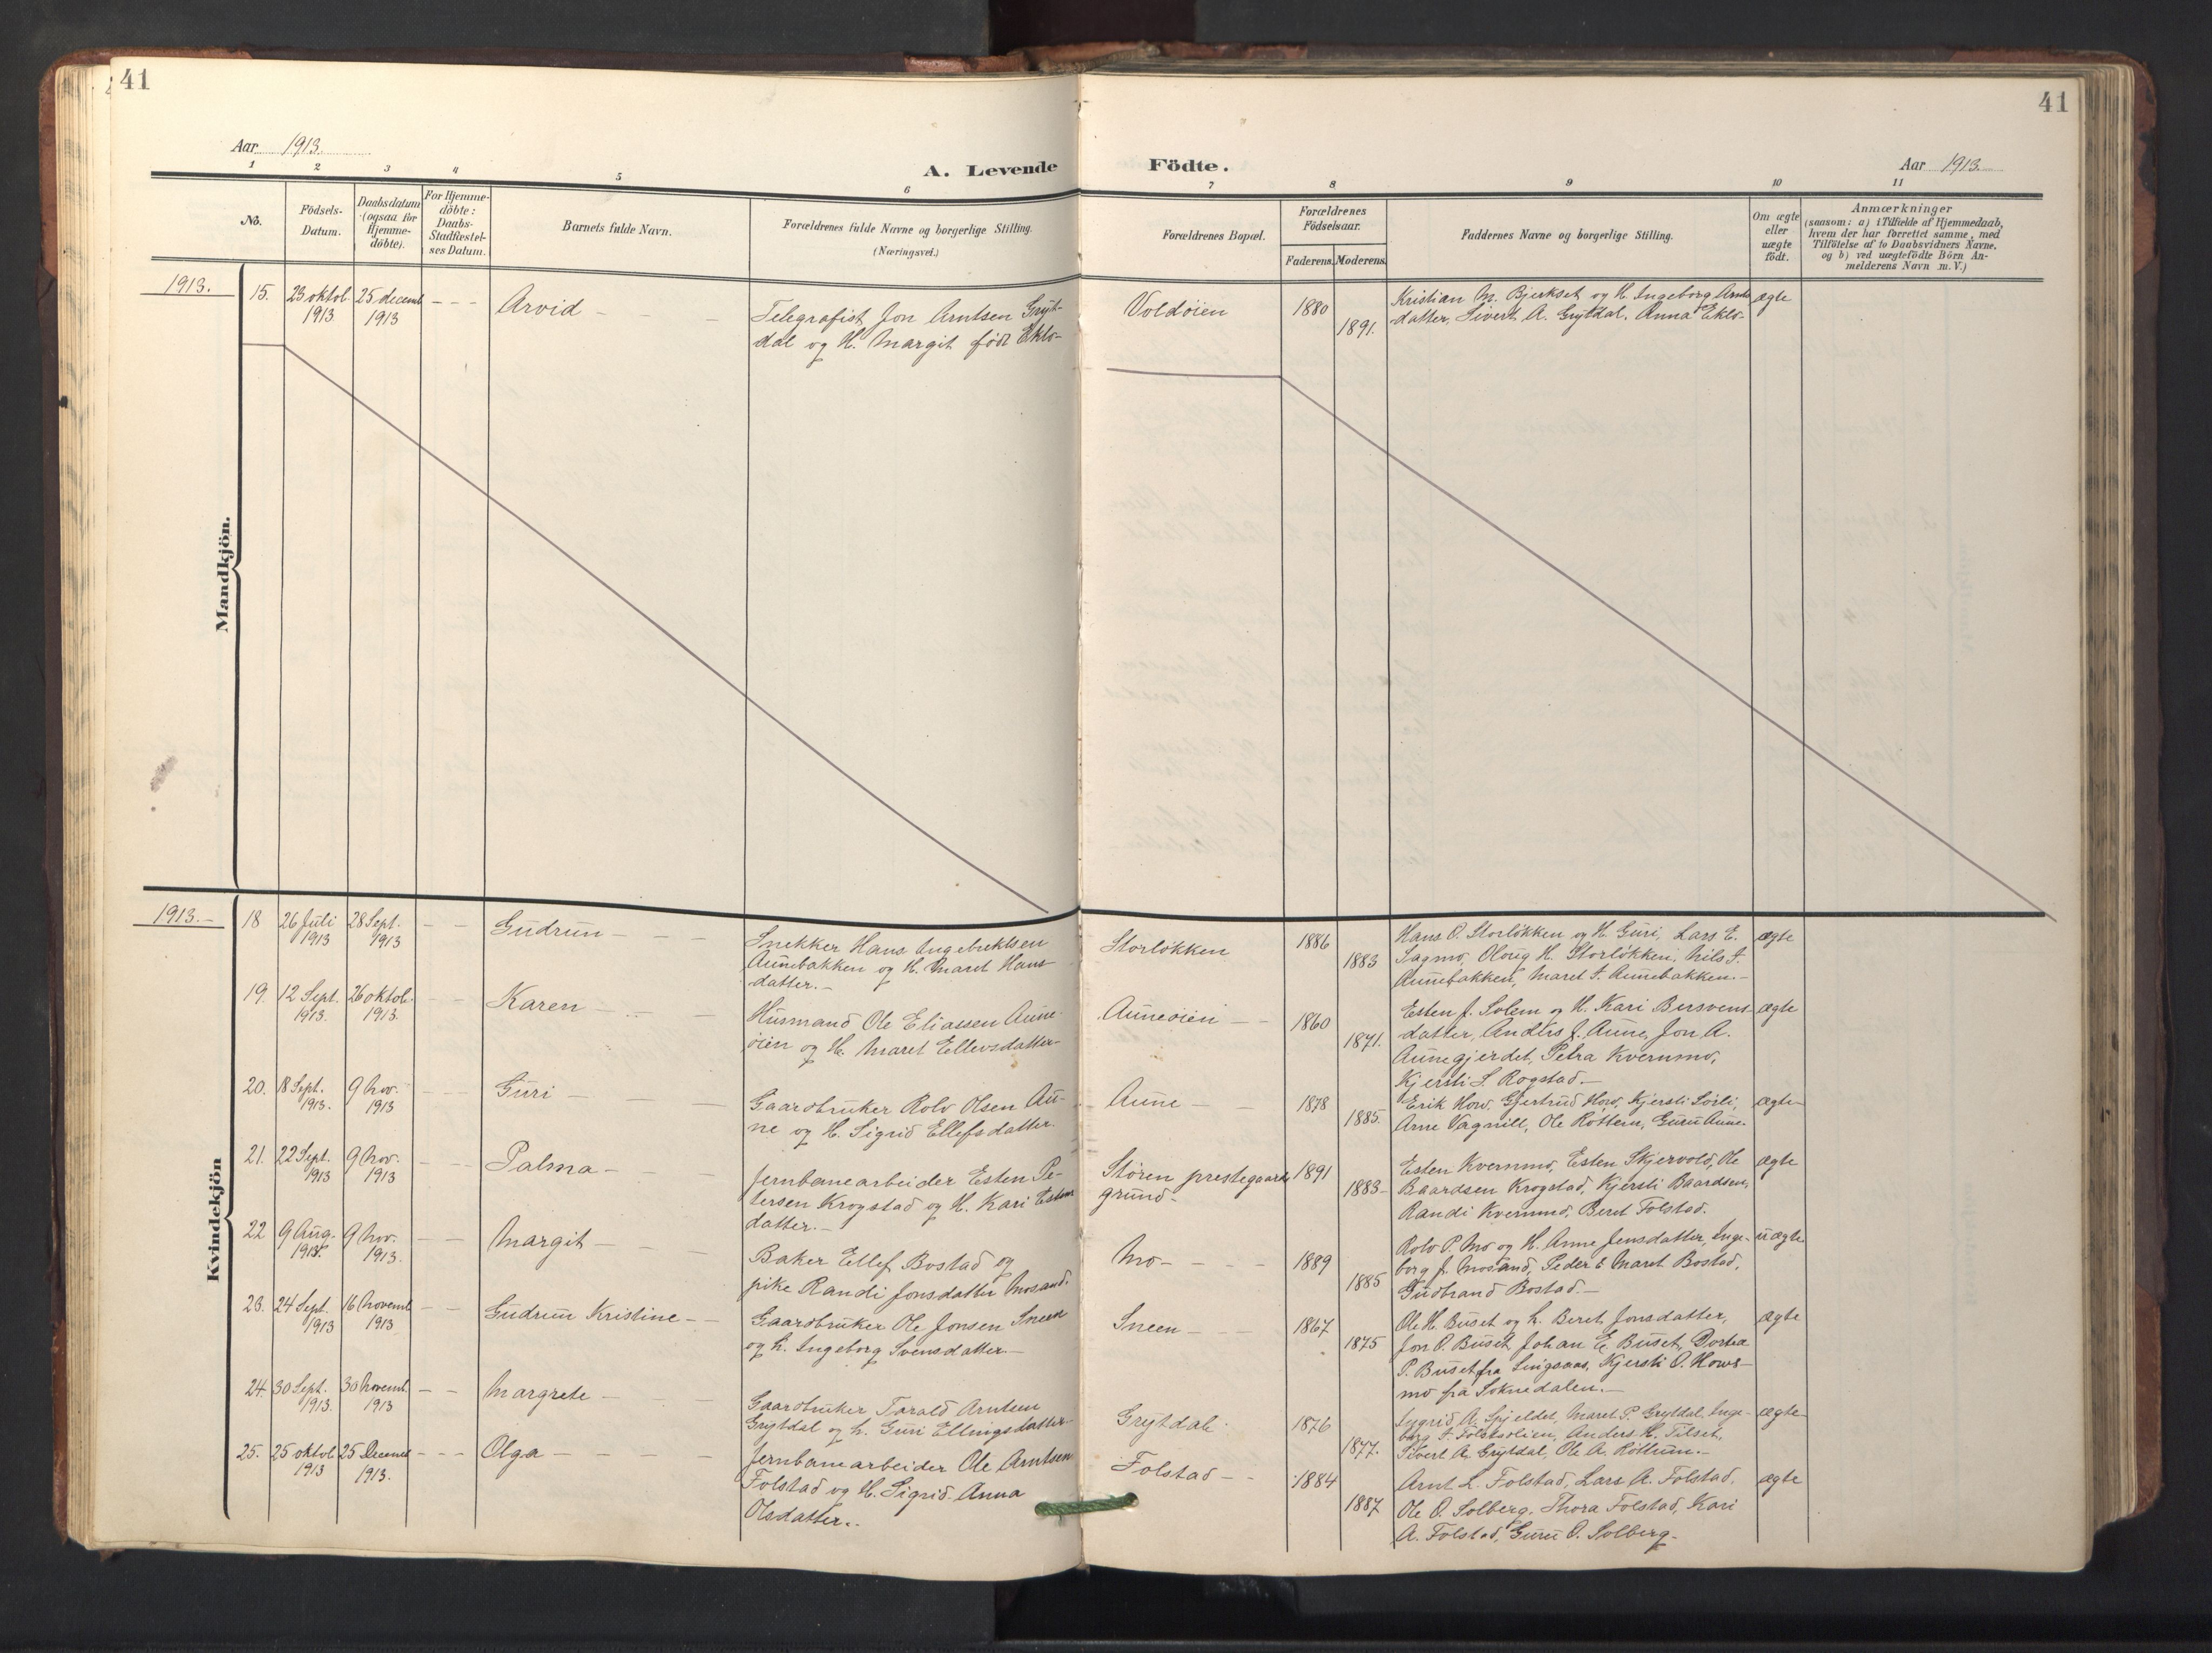 41
41
Aar 1913.
A. Levende Födte.
Aar 1913.
1 2 3 4 5 6 7 8 9 10 11
No.
Födsels-
Datum.
Daabsdatum
(ogsaa for
Hjemme-
döbte).
For Hjemme-
döbte:
Daabs-
Stadfæstel-
ses Datum.
Barnets fulde Navn.
Forældrenes fulde Navne og borgerlige Stilling.
(Næringsvei.)
Forældrenes Bopæl.
Forældrenes
Födselsaar.
Faderens. Moderens.
Faddernes Navne og borgerlige Stilling.
Om ægte
eller
uægte
födt.
Anmærkninger
(saasom: a) i Tilfælde af Hjemmedaab,
hvem der har forrettet samme, med
Tilföielse af to Daabsvidners Navne,
og b) ved uægtefödte Börn An-
melderens Navn m. V.)
Mandkjön.
1913.
15.
23 oktob.
1913
25 decemb
1913
- - -
Arvid - - -
Telegrafist Jon Arntsen Gryt-
dal og H. Margit född Eklo-
Voldöien
1880
1891.
Kristian M. Bjerkset og H. Ingeborg Arnts
datter, Sivert A. Grytdal, Anna Eklo-
ægte
Kvindekjön
1913.-
18
26 Juli
1913
28 Sept.
1913
- -
Gudrun - - -
Snekker Hans Ingebrektsen
Aunebakken og H. Maret Hans
datter.-
Storløkken
1886
1883
Hans O. Storløkken og H. Guri, Lars E.
Sagmo, Oloug H. Storløkken, Nils I.
Aunebakken, Maret I. Aunebakken.-
ægte
19.
12 Sept.
1913.
26 oktob.
1913.
- -
Karen - - -
Husmand Ole Eliassen Aune
øien og H. Maret Ellevsdatter-
Auneøien - -
1860
1871.
Esten J. Solem og H. Kari Bersvens
datter, Anders J. Aune, Jon A.
Aunegjerdet, Petra Kvernmo,
Kjersti L Rogstad.-
ægte
20.
18 Sept.
1913.
9 Nov.
1913
- -
Guri - - -
Gaardbruker Rolv Olsen Au-
ne og H. Sigrid Ellefsdatter.
Aune - -
1878
1885.
Erik Hov. Gjertrud Hov, Kjersti Sørli,
Arne Vagnild, Ole Røttem, Guru Aune.
ægte-
21.
22 Sept.
1913
9 Nov.
1913
- - -
Palma - - -
Jernbanearbeider Esten Pe-
tersen Krogstad og H. Kari Esten
datter.-
Støren prestegaards
grund-
1891
1883-
Esten Kvernmo, Esten Skjervold, Ole
Baardsen Krogstad, Kjersti Baardsen,
Randi Kvernmo, Beret Folstad.
ægte
22
9 Aug.
1913.
9 Nov.
1913.
- -
Margit - - -
Baker Ellef Bostad og
pike Randi Jonsdatter Mosand.
Mo - - - -
1889
1885
Rolv P. Mo og H. Anne Jensdatter, Inge-
borg J. Mosand, Peder & Maret Bostad,
Gudbrand Bostad.-
uægte
23.
24 Sept.
1913
16 Novemb
1913
- -
Gudrun Kristine - -
Gaardbruker Ole Jonsen Sneen
og h. Ingeborg Svensdatter-
Sneen - - -
1867
1875
Ole H. Buset og h. Beret Jonsdatter,
Jon O. Buset, Johan E. Buset, Dortea
P. Buset fra Singsaas, Kjersti O. Hows-
mo fra Soknedalen.-
ægte
24.
30 Sept.
1913.
30 Novemb.
1913
- -
Margrete - - -
Gaardbruker Tarald Arntsen
Grytdal og h. Guri Ellingsdatter-
Grytdal-
1876
1877.
Sygrid A. Spjeldet, Maret P. Grytdal, Inge-
borg Anders H. Tilset,
Sivert A. Grytdal, Ole A. Røttum.-
ægte-
25.
25 oktob
1913
25 Decemb
1913.
- - -
Olga - - - -
Jernbanearbeider Ole Arntsen
Folstad og H. Sigrid Anna
Olsdatter..
Folstad - -
1884
1887
Arnt L. Folstad, Lars A. Folstad,
Ole O. Solberg, Thora Folstad, Kari
A. Folstad, Guru O. Solberg-
ægte